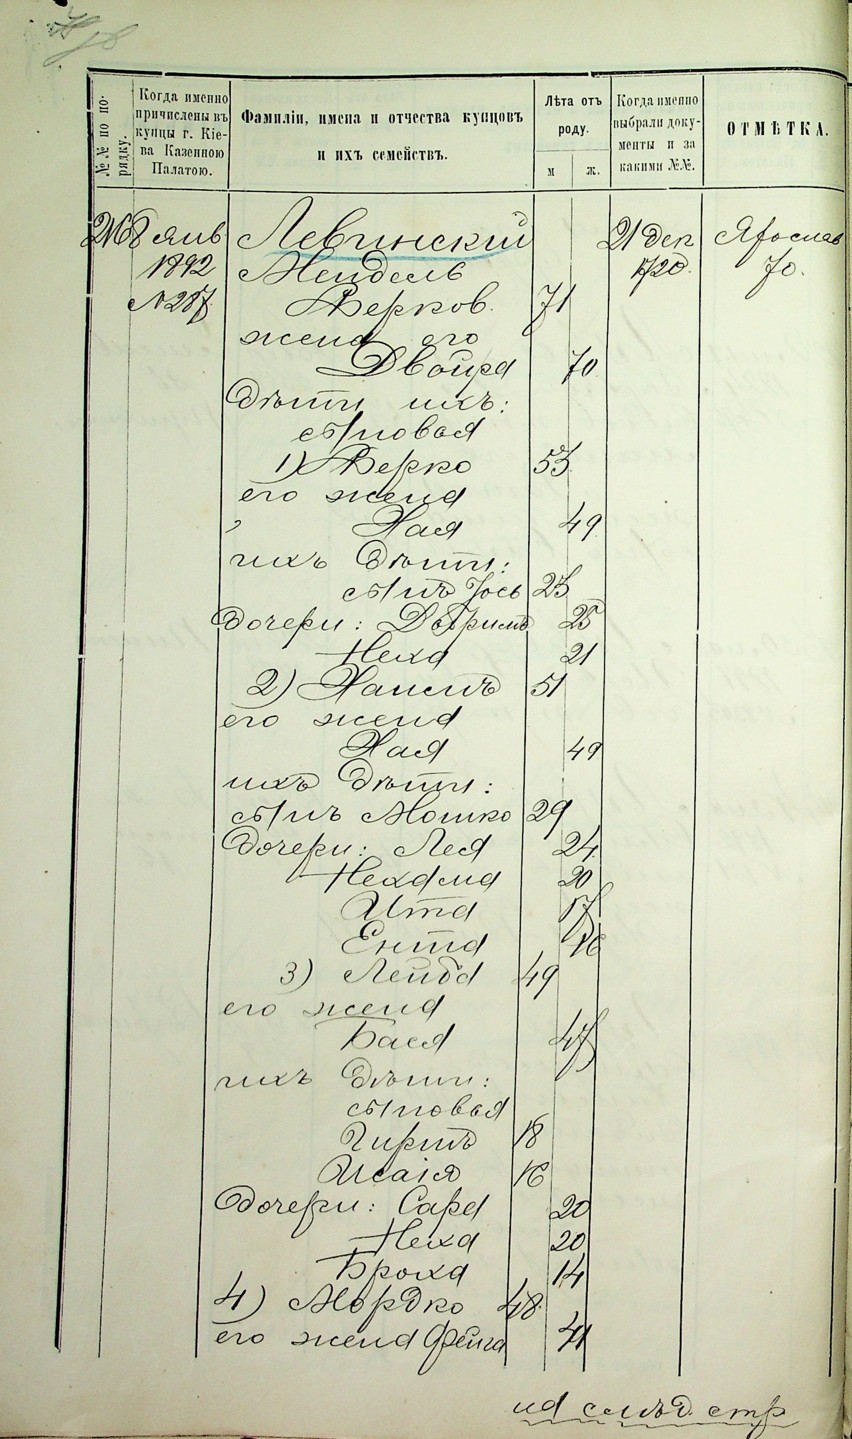 №№ по порядку.
Когда именно
причислены въ
купцы г. Кіе-
ва Казенною
Палатою.
Фамиліи, имена и отчества купцовъ
и ихъ семействъ.
Лѣта отъ
роду.
м
ж.
Когда именно
выбрали доку-
менты и за
какими №№.
ОТМѢТКА.
8 янв Левинский 21 дек Ярослав
1892 Мендель 1720 70.
№ 287 Берков. 71
жена его
Двойра 70
Дѣти ихъ:
сыновья
1) Берко 53
его жена
Хая 49
ихъ дѣти:
сынъ Іось 23
Дочери: 25
Неха 21
2) Хаимъ 51
его жена
Хая 49
ихъ дѣти:
сынъ Мошко 29
Дочери: Лея 24
Нехама 20
Ита 17
Ента 16
3) Лейба 49
его жена
Бася 47
ихъ дѣти:
сыновья
Гиршъ 18
Исаія 16
Дочери: Сара 20
Неха 20
Броха 14
4) Мордко 48
его жена Фейга 41
на слѣд. стр